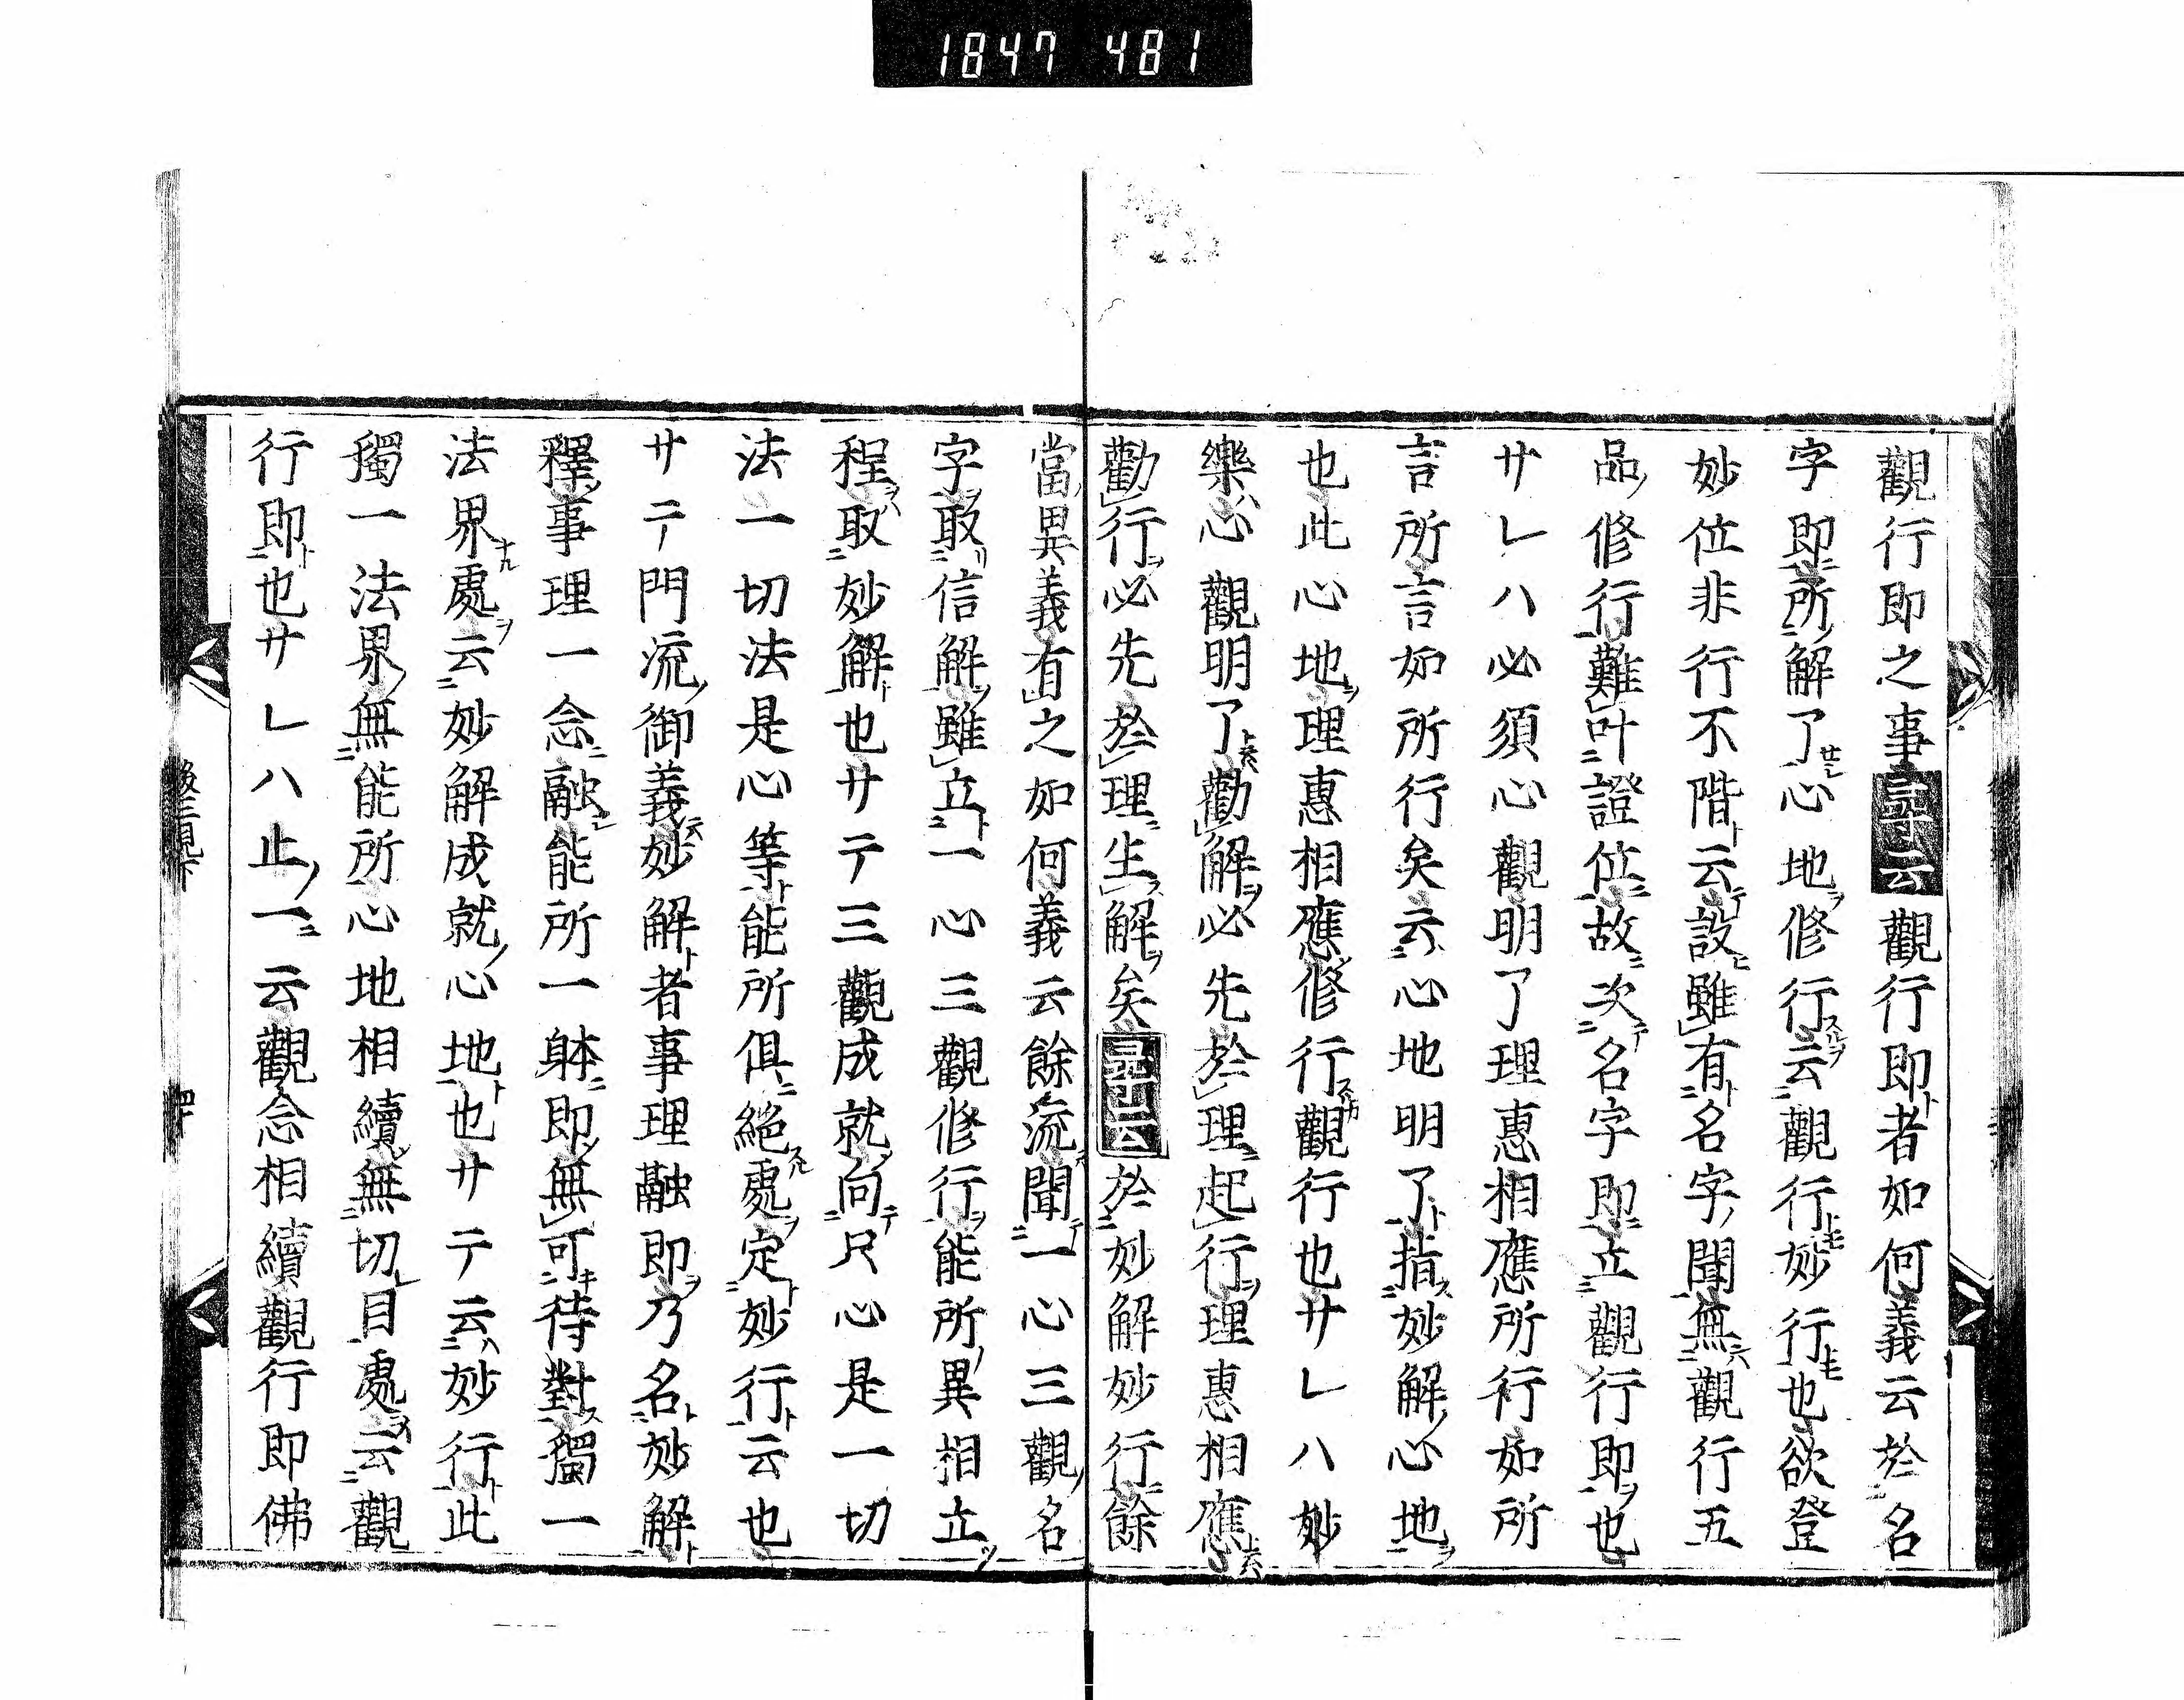 1847 481
觀行即之事尋云觀行即ト者如何義云於名
字即所解了心地修行云觀行妙行也欲登
妙位非行不階云設雖有名字聞無觀行五
品修行難叶證位故次名字即立觀行即也
サレハ必須心觀明了理惠相應所行如所
言所言如所行矣云心地明了指妙解心地
也此心地理惠相應修行觀行也サレハ妙
樂心觀明了勸解必先於理起行理惠相應
勸行必先於理生解矣尋云於妙解妙行餘
當異義有之如何義云餘流聞一心三觀名
字取信解雖立一心三觀修行能所異相立
程取妙解也サテ三觀成就向只心是一切
法一切法是心等能所俱絕處定妙行云也
サテ門流御義妙解者事理融即乃名妙解
釋事理一念融能所一躰即無可待對獨一
法界處云妙解成就心地也サテ云妙行此
獨一法界無能所心地相續無切目處云觀
行即也サレハ止一云觀念相續觀行即佛